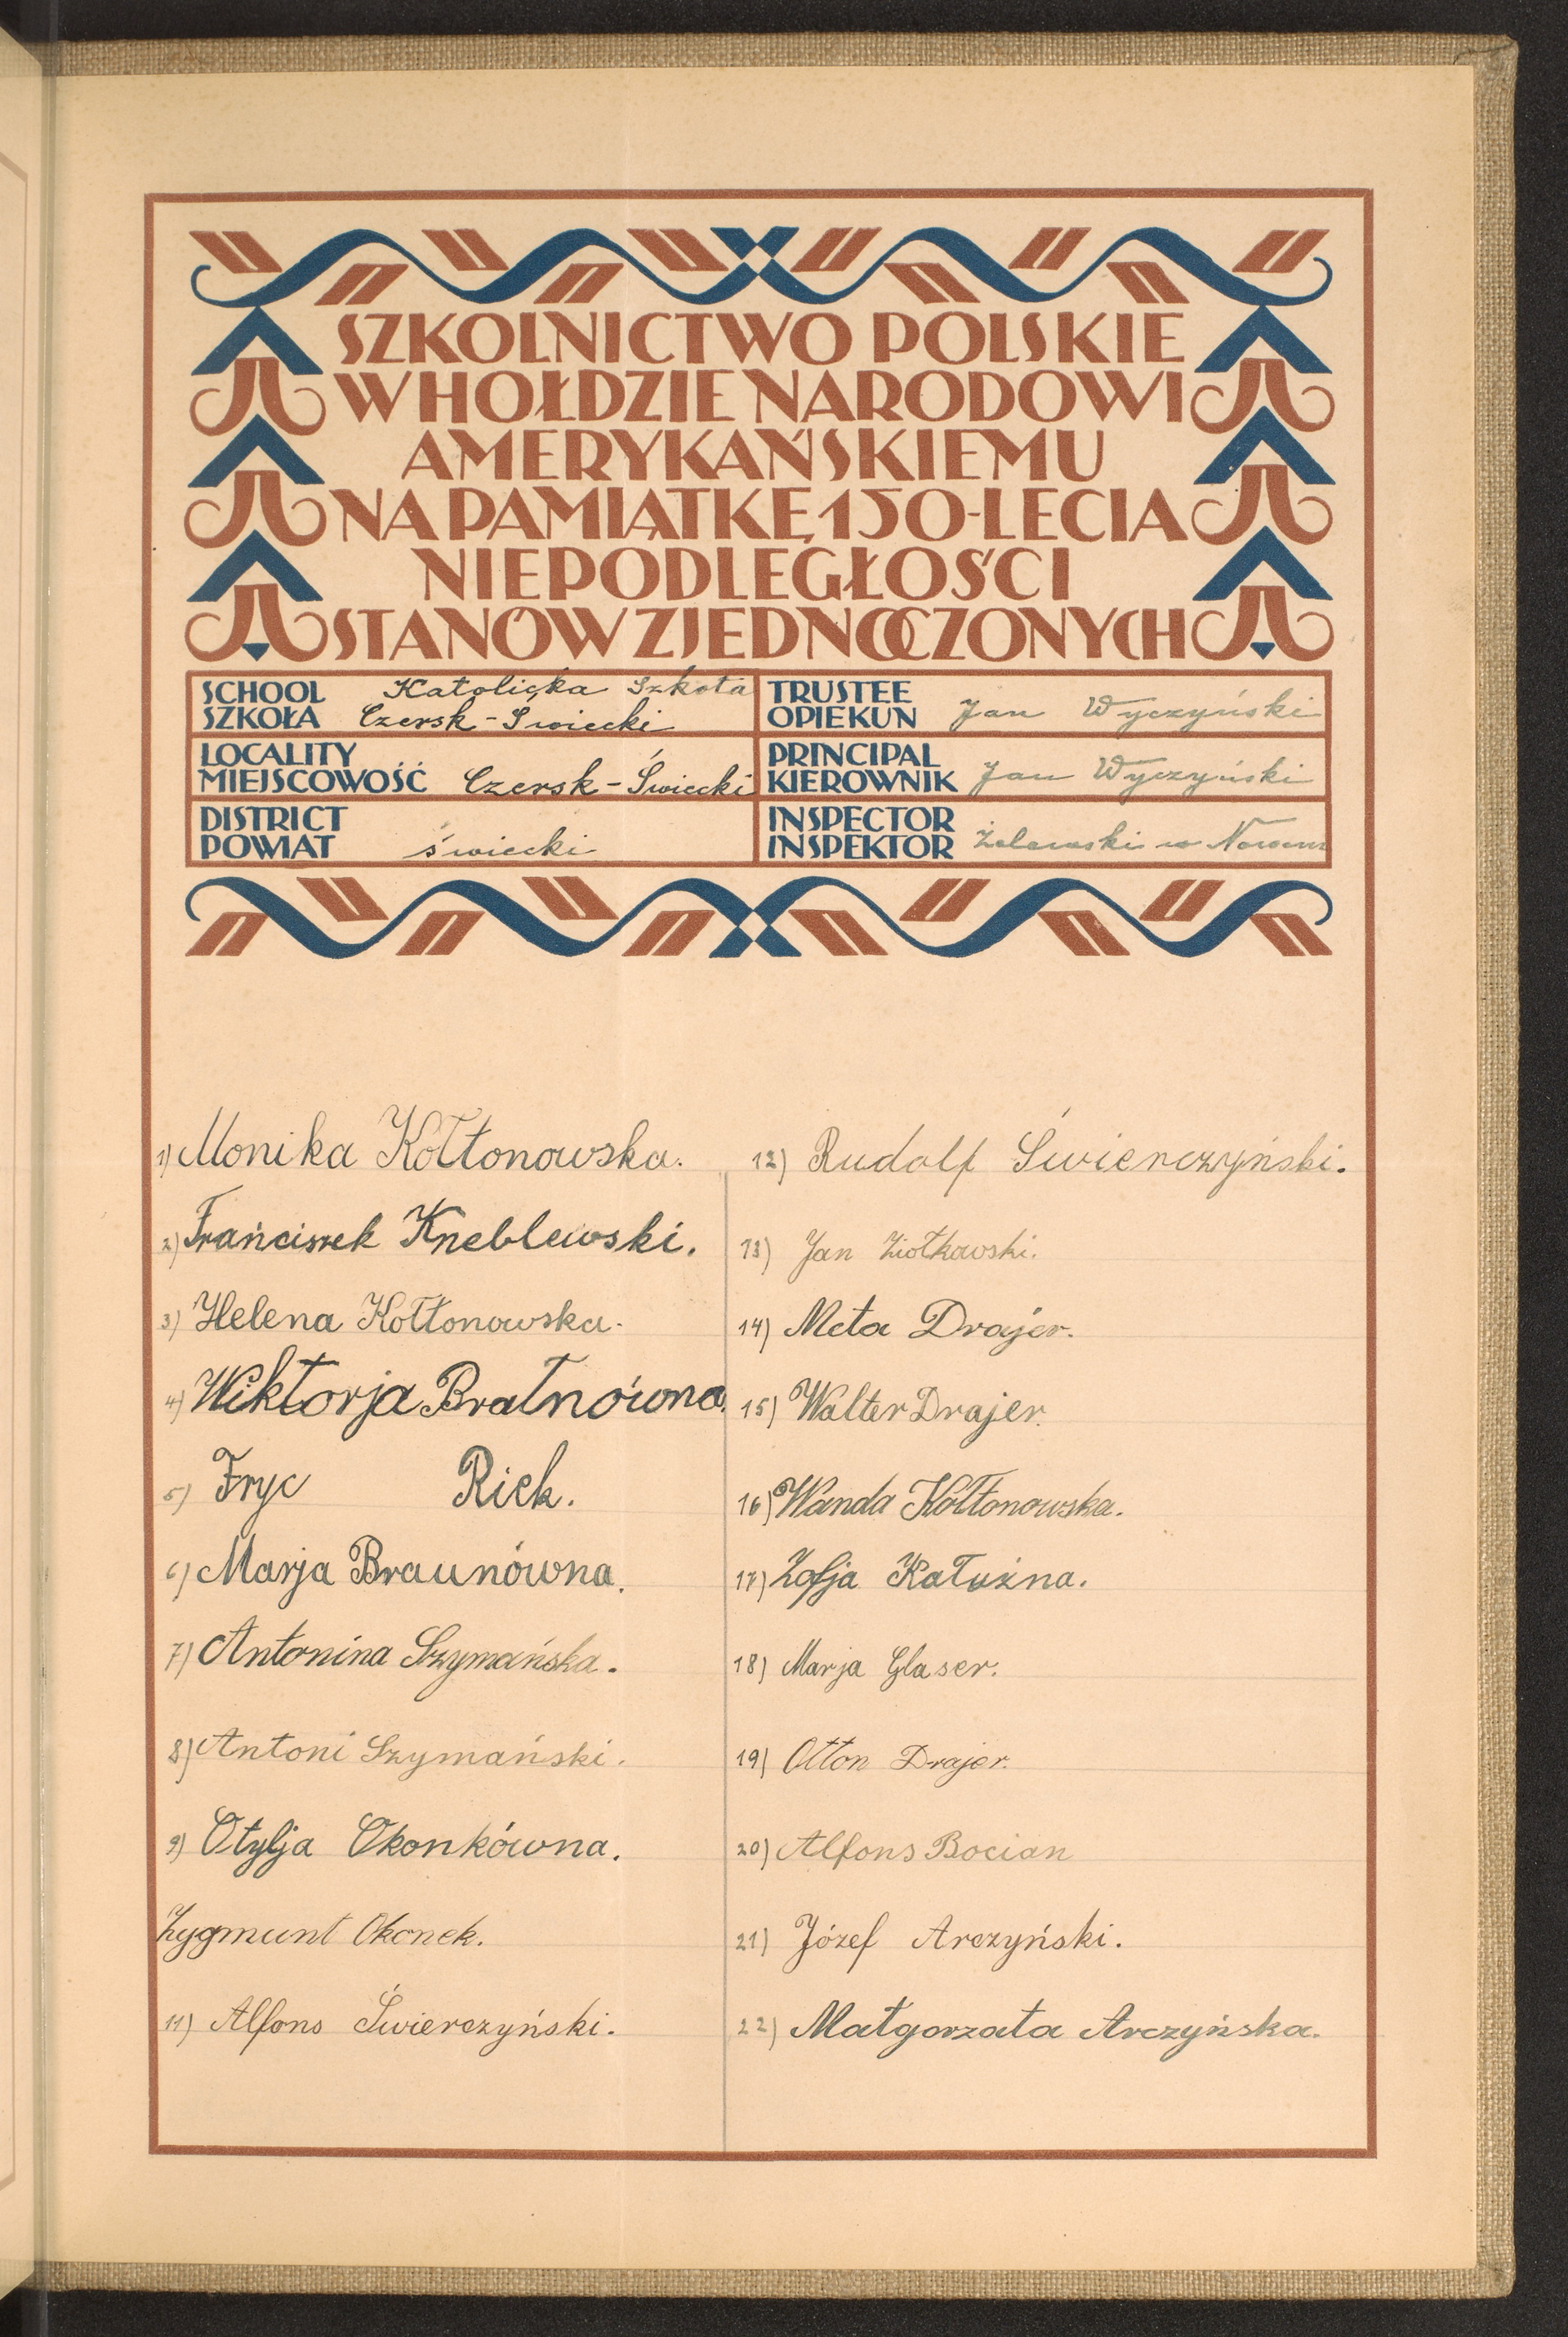 SZKOLNICTWO POLSKIE
W HOŁDZIE NARODOWI
AMERYKAŃSKIEMU
NA PAMIĄTKĘ 150-LECIA
NIEPODLEGŁOŚCI
STANÓW ZJEDNOCZONYCH
SCHOOL
SZKOŁA
Katolicka Szkoła
Czersk-Świecki
TRUSTEE
OPIEKUN
Jan Wyczyński
LOCALITY
MIEJSCOWOŚĆ
Czersk-Świecki
PRINCIPAL
KIEROWNIK
Jan Wyczyński
DISTRICT
POWIAT
świecki
INSPECTOR
INSPEKTOR
w
1) Monika Kołtonowska.
2) Franciszek Kneblewski.
3) Helena Kołtonowska.
4) Wiktorja Bratnówna.
5) Fryc Riek.
6) Marja Braunówna.
7) Antonina Szymańska.
8) Antoni Szymański.
9) Otylja Okonkówna.
Zygmunt Okonek.
11) Alfons Świerczyński.
12) Rudolf Świerczyński.
13) Jan Ziołkowski.
14) Meta Drajer.
15) Walter Drajer.
16) Wanda Kołtonowska.
17) Zofja Kałużna.
18) Marja Glaser.
19) Otton Drajer.
20) Alfons Bocian
21) Józef Arczyński.
22) Małgorzata Arczyńska.